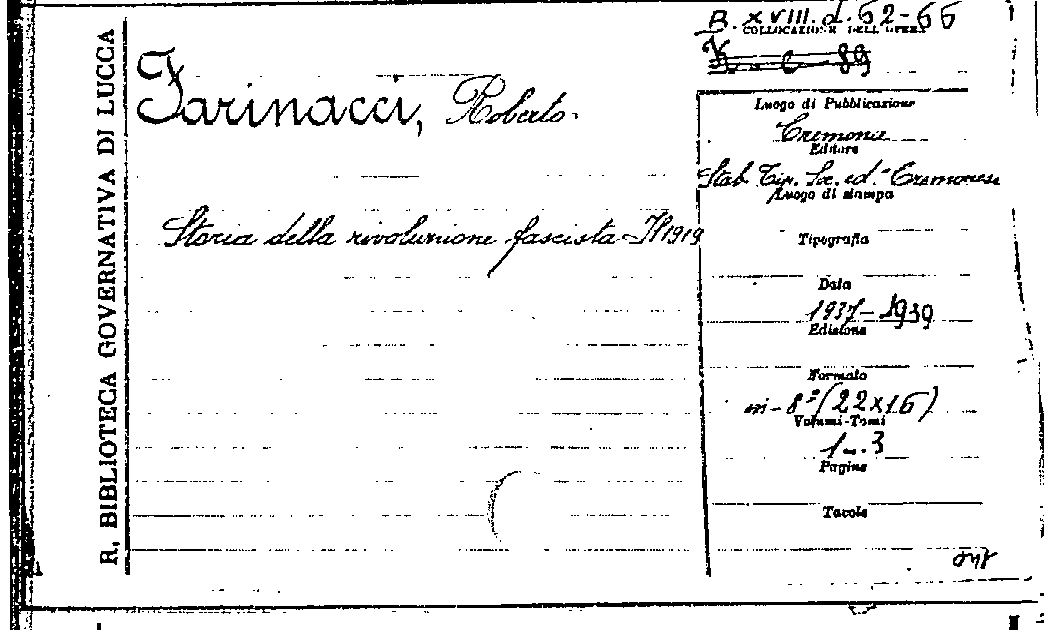 R. BIBLIOTECA GOVERNATIVA DI LUCCA
Farinacci, Roberto.
Storia della rivoluzione fascista - Il 1919
B. XVIII. d. 62-66
COLLOCAZIONE DELL'OPERA
Luogo di Pubblicazione
Cremona
Editore
Stab. Tip. Soc. ed. "Cremona
Luogo di stampa
Tipografia
Data
1937-1939
Edizione
Formato
in-8º (22x16)
Volumi-Tomi
1-3
Pagine
Tavole